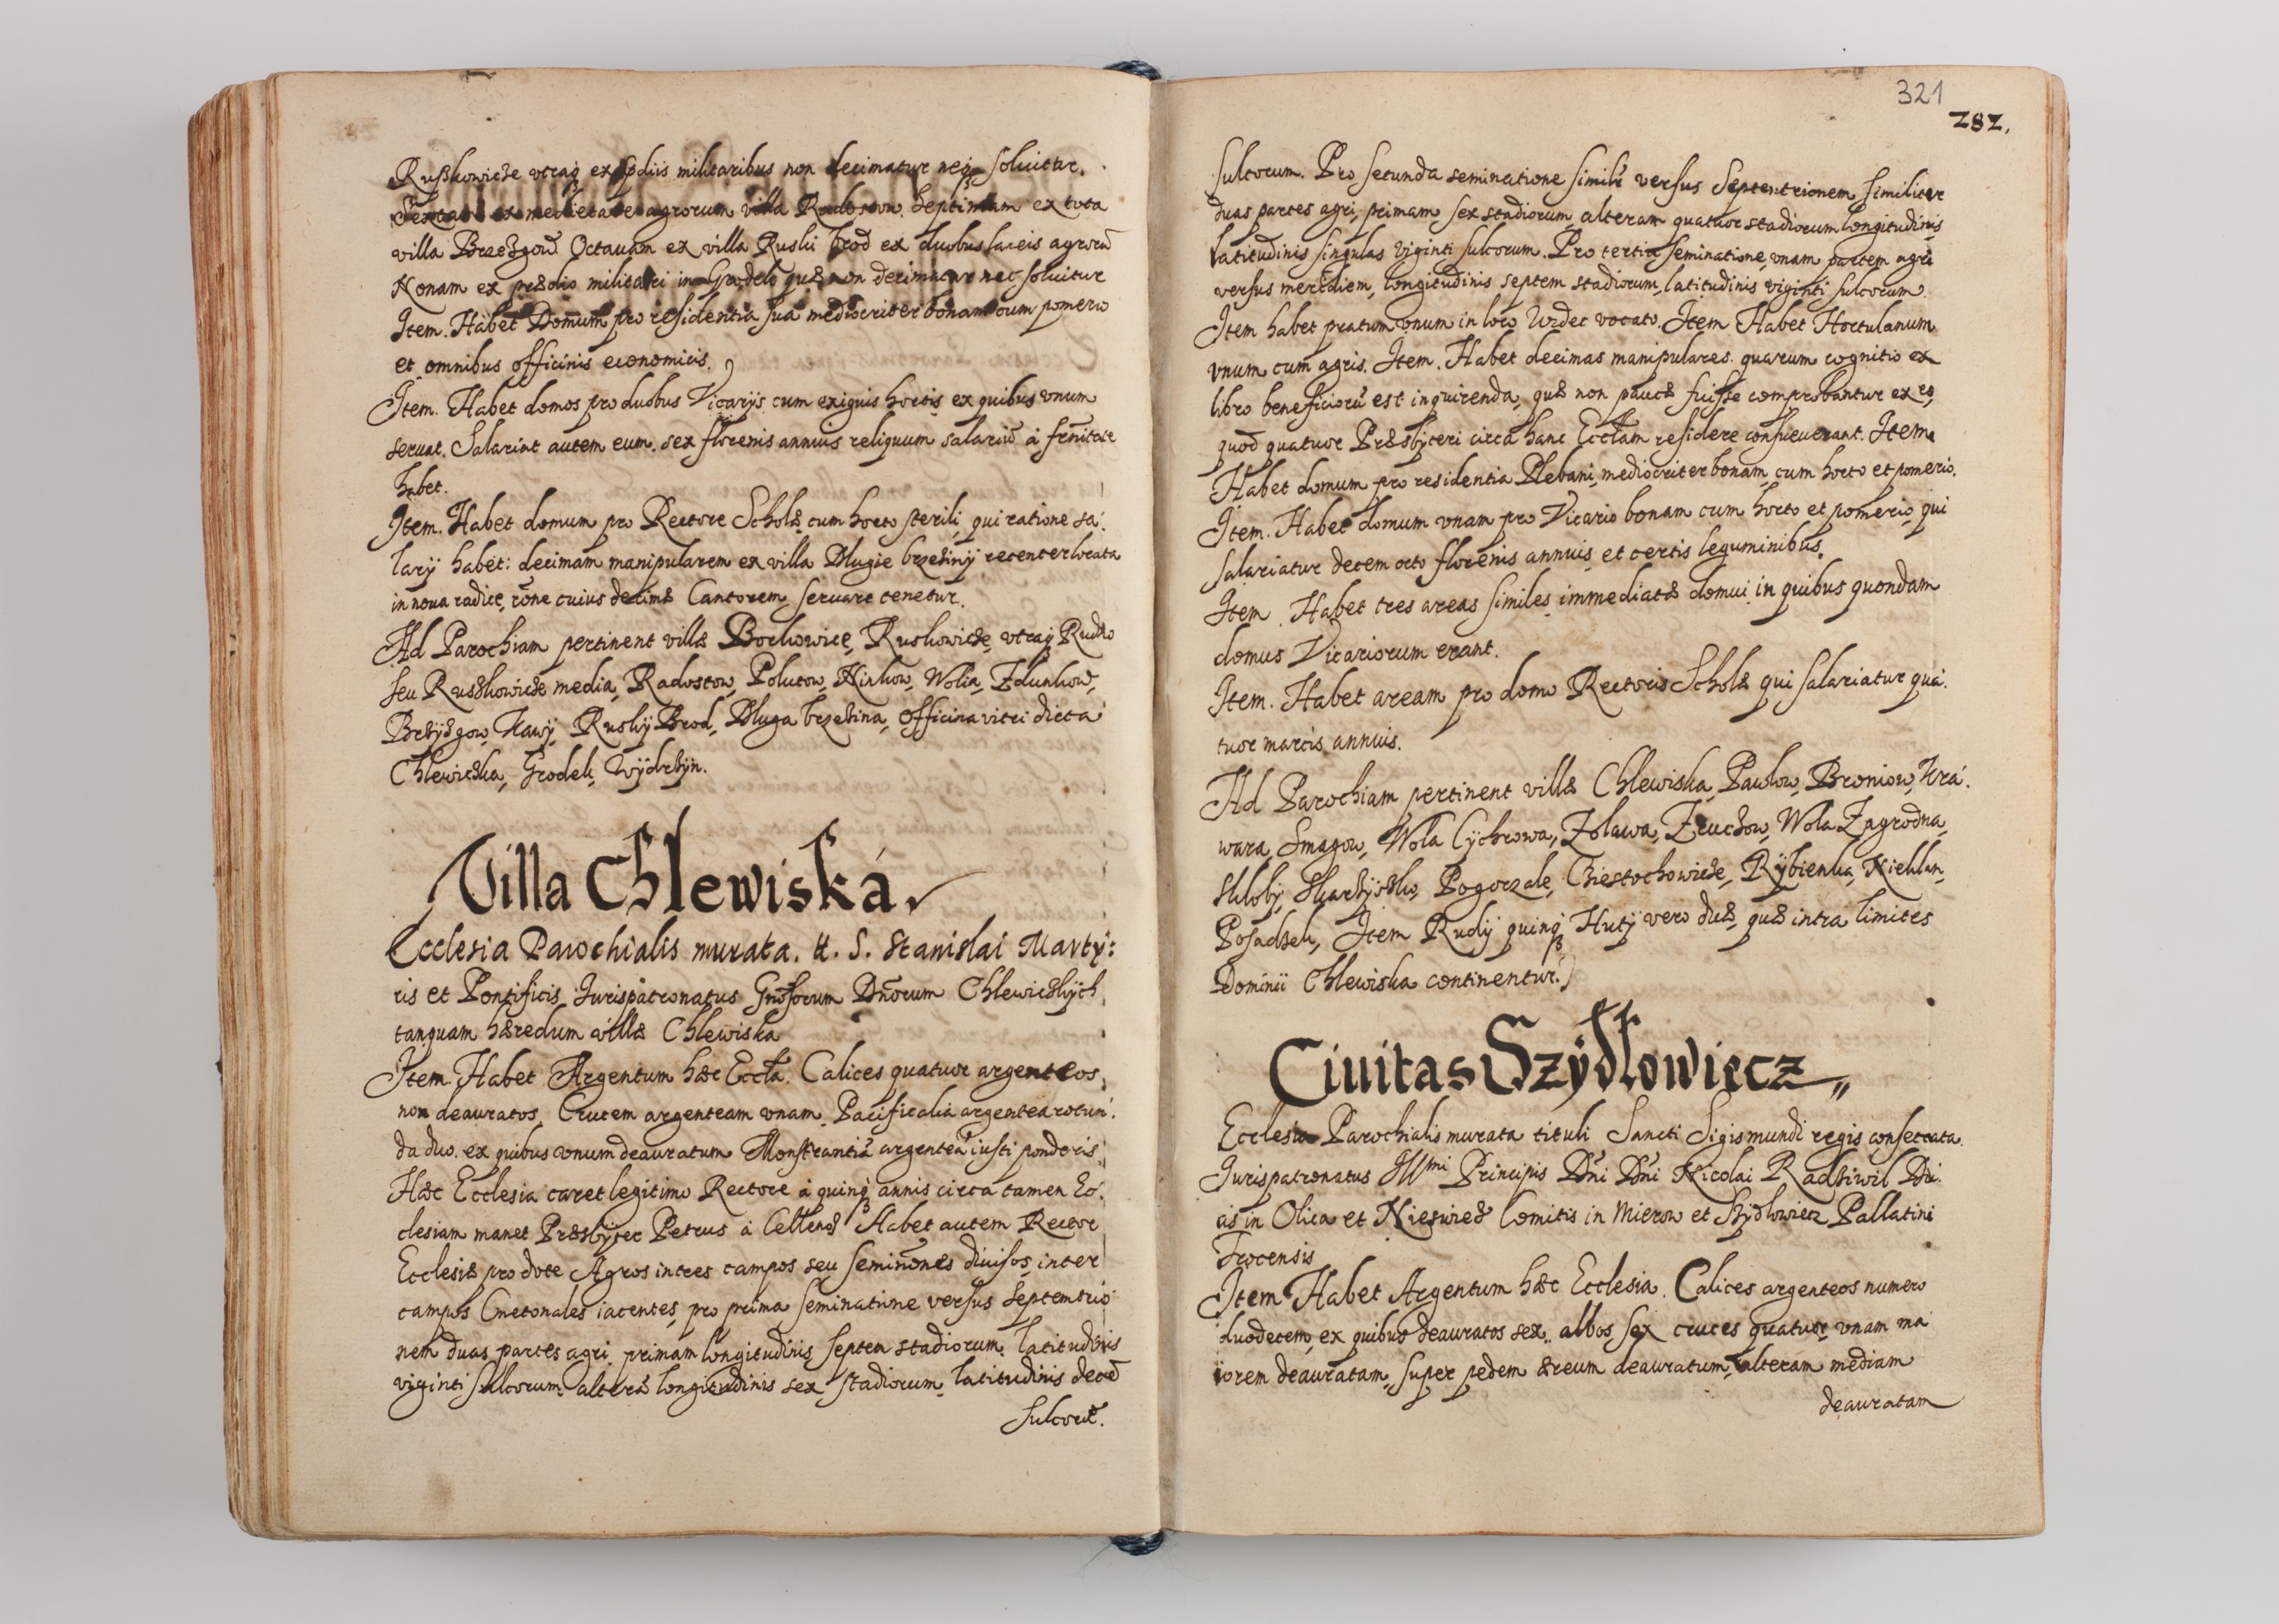 Ruszkowicze vtraq ex pdiis militaribus non decimatur neq soluitur.
Sextam ex medietate agrorum villa Radostow. Septimam ex tota
villa Brzezgow Octauam ex villa Ruski brod ex duobus laneis agrorū
Nonam ex prædio militari in Grodek quæ non decimatur nec soluitur
Item. Habet Domum pro residentia sua mediocriter bonam cum pomerio
et omnibus officinis economicis.
Item. Habet domos pro duobus Vicarijs cum exiguis hortis ex quibus vnum
seruat. Salariat autem eum sex florenis annuis reliquum salariū à frnitate
habet.
Item. Habet domum pro Rectore Scholæ cum horto sterili, qui ratione sa:
larij habet: decimam manipularem ex villa Dlugie brzeziny recenter locata
in noua radice, rōne cuius decimæ Cantorem seruare tenetur.
Ad Parochiam pertinent villæ Borkowice, Ruskowicze, vtraq Rudno
seu Ruszkowicze media, Radostow, Politow, Ninkow, Wolia, Zdunkow,
Brzyzgow, Kawy, Rusky Brod, Dluga brzezina, officina vitri dicta
Chlewiczka, Grodek, Wydrzyn.
Villa Chlewiska
Ecclesia Parochialis murata. tt. S. Stanislai Marty:
ris et Pontificis Jurispatronatus Gnosorum Dnorum Chlewiczkych
tanquam hæredum villæ Chlewiska
Item. Habet Argentum hæc Eccla. Calices quatuor argenteos
non deauratos. Crucem argenteam vnam. Pacificalia argentea rotun:
da duo. ex quibus vnum deauratum Monstrantiā argenteā iusti ponderis
Hæc Ecclesia caret legitimo Rectore à quinq annis circa tamen Ec:
clesiam manet Præsbyter Petrus à Habet autem Rector
Ecclesiæ pro dote Agros in tres campos seu seminones diuisos inter
campos Cmetonales iacentes, pro prima seminatione versus Septemtrio
nem duas partes agri, primam longitudinis septem stadiorum latitudinis
viginti sulcorum. alterā longitudinis sex stadiorum, latitudinis decē
sulcorū.
321
282.
sulcorum. Pro secunda seminatione simili versus Septentrionem similiter
duas partes agri, primam, sex stadiorum, alteram quatuor stadiorum longitudinis
latitudinis singulas viginti sulcorum. Pro tertia seminatione, vnam partem agri
versus meridiem, longitudinis septem stadiorum, latitudinis viginti sulcorum.
Item habet pratum vnum in loco Uzdec vocato. Item Habet Hortulanum
vnum cum agris. Item. Habet decimas manipulares. quarum cognitio ex
libro beneficiorū est inquirenda, quæ non paucæ fuisse comprobantur ex eo,
quod quatuor Præsbyteri circa hanc Ecclam residere consueuerant. Item
Habet domum pro residentia Plebani mediocriter bonam cum horto et pomerio.
Item. Habet domum vnam pro Vicario bonam cum horto et pomerio qui
salariatur decem octo florenis annuis et certis leguminibus.
Item. Habet tres areas similes immediatæ domui in quibus quondam
domus Vicariorum erant.
Item. Habet aream pro domo Rectoris Scholæ qui salariatur qua:
tuor marcis annuis.
Ad Parochiam pertinent villæ Chlewiska, Pawlow, Broniow, Kra:
wara, Smagow, Wola Cychrowa, Zolawa, Zeuchow, Wola Zagrodna,
Skloby, Skarzysko, Pogorzale, Cziestochowicze, Rybienka, Nieklan,
Posadzek, Item Rudy quinq Huty vero duæ, quæ intra limites
Dominii Chlewiska continentur.
Ciuitas Szydlowiecz
Ecclesia Parochialis murata tituli Sancti Sigismundi regis consecrata.
Jurispatronatus Illmi Principis Dni Dni Nicolai Radziwil Du:
cis in Olica et Nieswiez Comitis in Mierow et Szydlowiecz Pallatini
Trocensis
Item Habet Argentum hæc Ecclesia. Calices argenteos numero
duodecem, ex quibus deauratos sex, albos sex cruces quatuor vnam ma
iorem deauratam, super pedem æreum deauratum, alteram mediam
deauratam